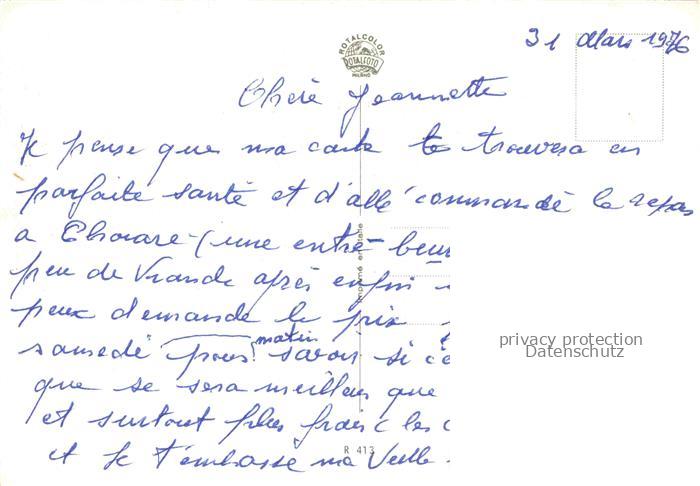 31 Mars 1976
ROTALCOLOR
ROTALFOTO
MILANO
Chère Jeannette
Je pense que ma carte te trouvera en
parfaite santé et d'allé commandé le repas
a Chouare (une entré beur
peu de Viande après enfin
peux demande le prix
samedi matin pour savoir si
que se sera meilleur que
et surtout plus frais (les
et Je t'embrasse ma Vielle.
Imprimé en Italie
R 413
privacy protection
Datenschutz